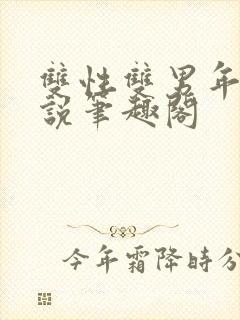 雙性雙男年
說筆趣閣
今年霜降時分